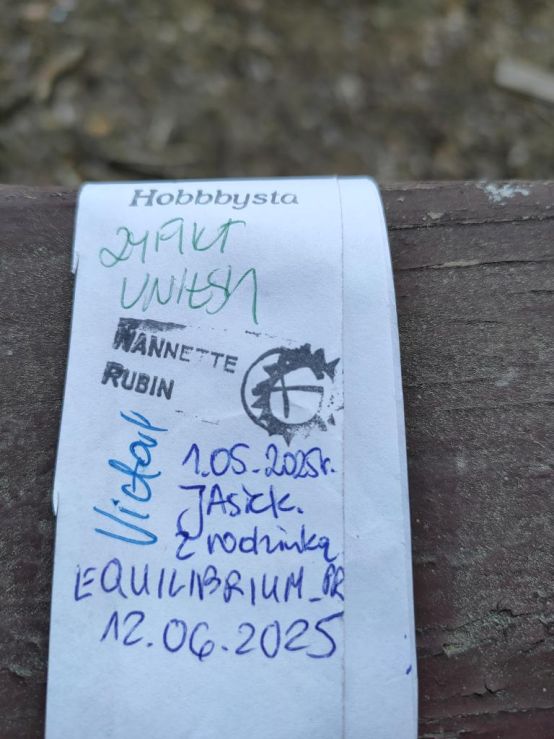 Hobbbysta
NANNETTE
RUBIN
Victor
1.05.2025r.
JAsick.
z rodzinką
EQUILIBRIUM_PR
12.06.2025